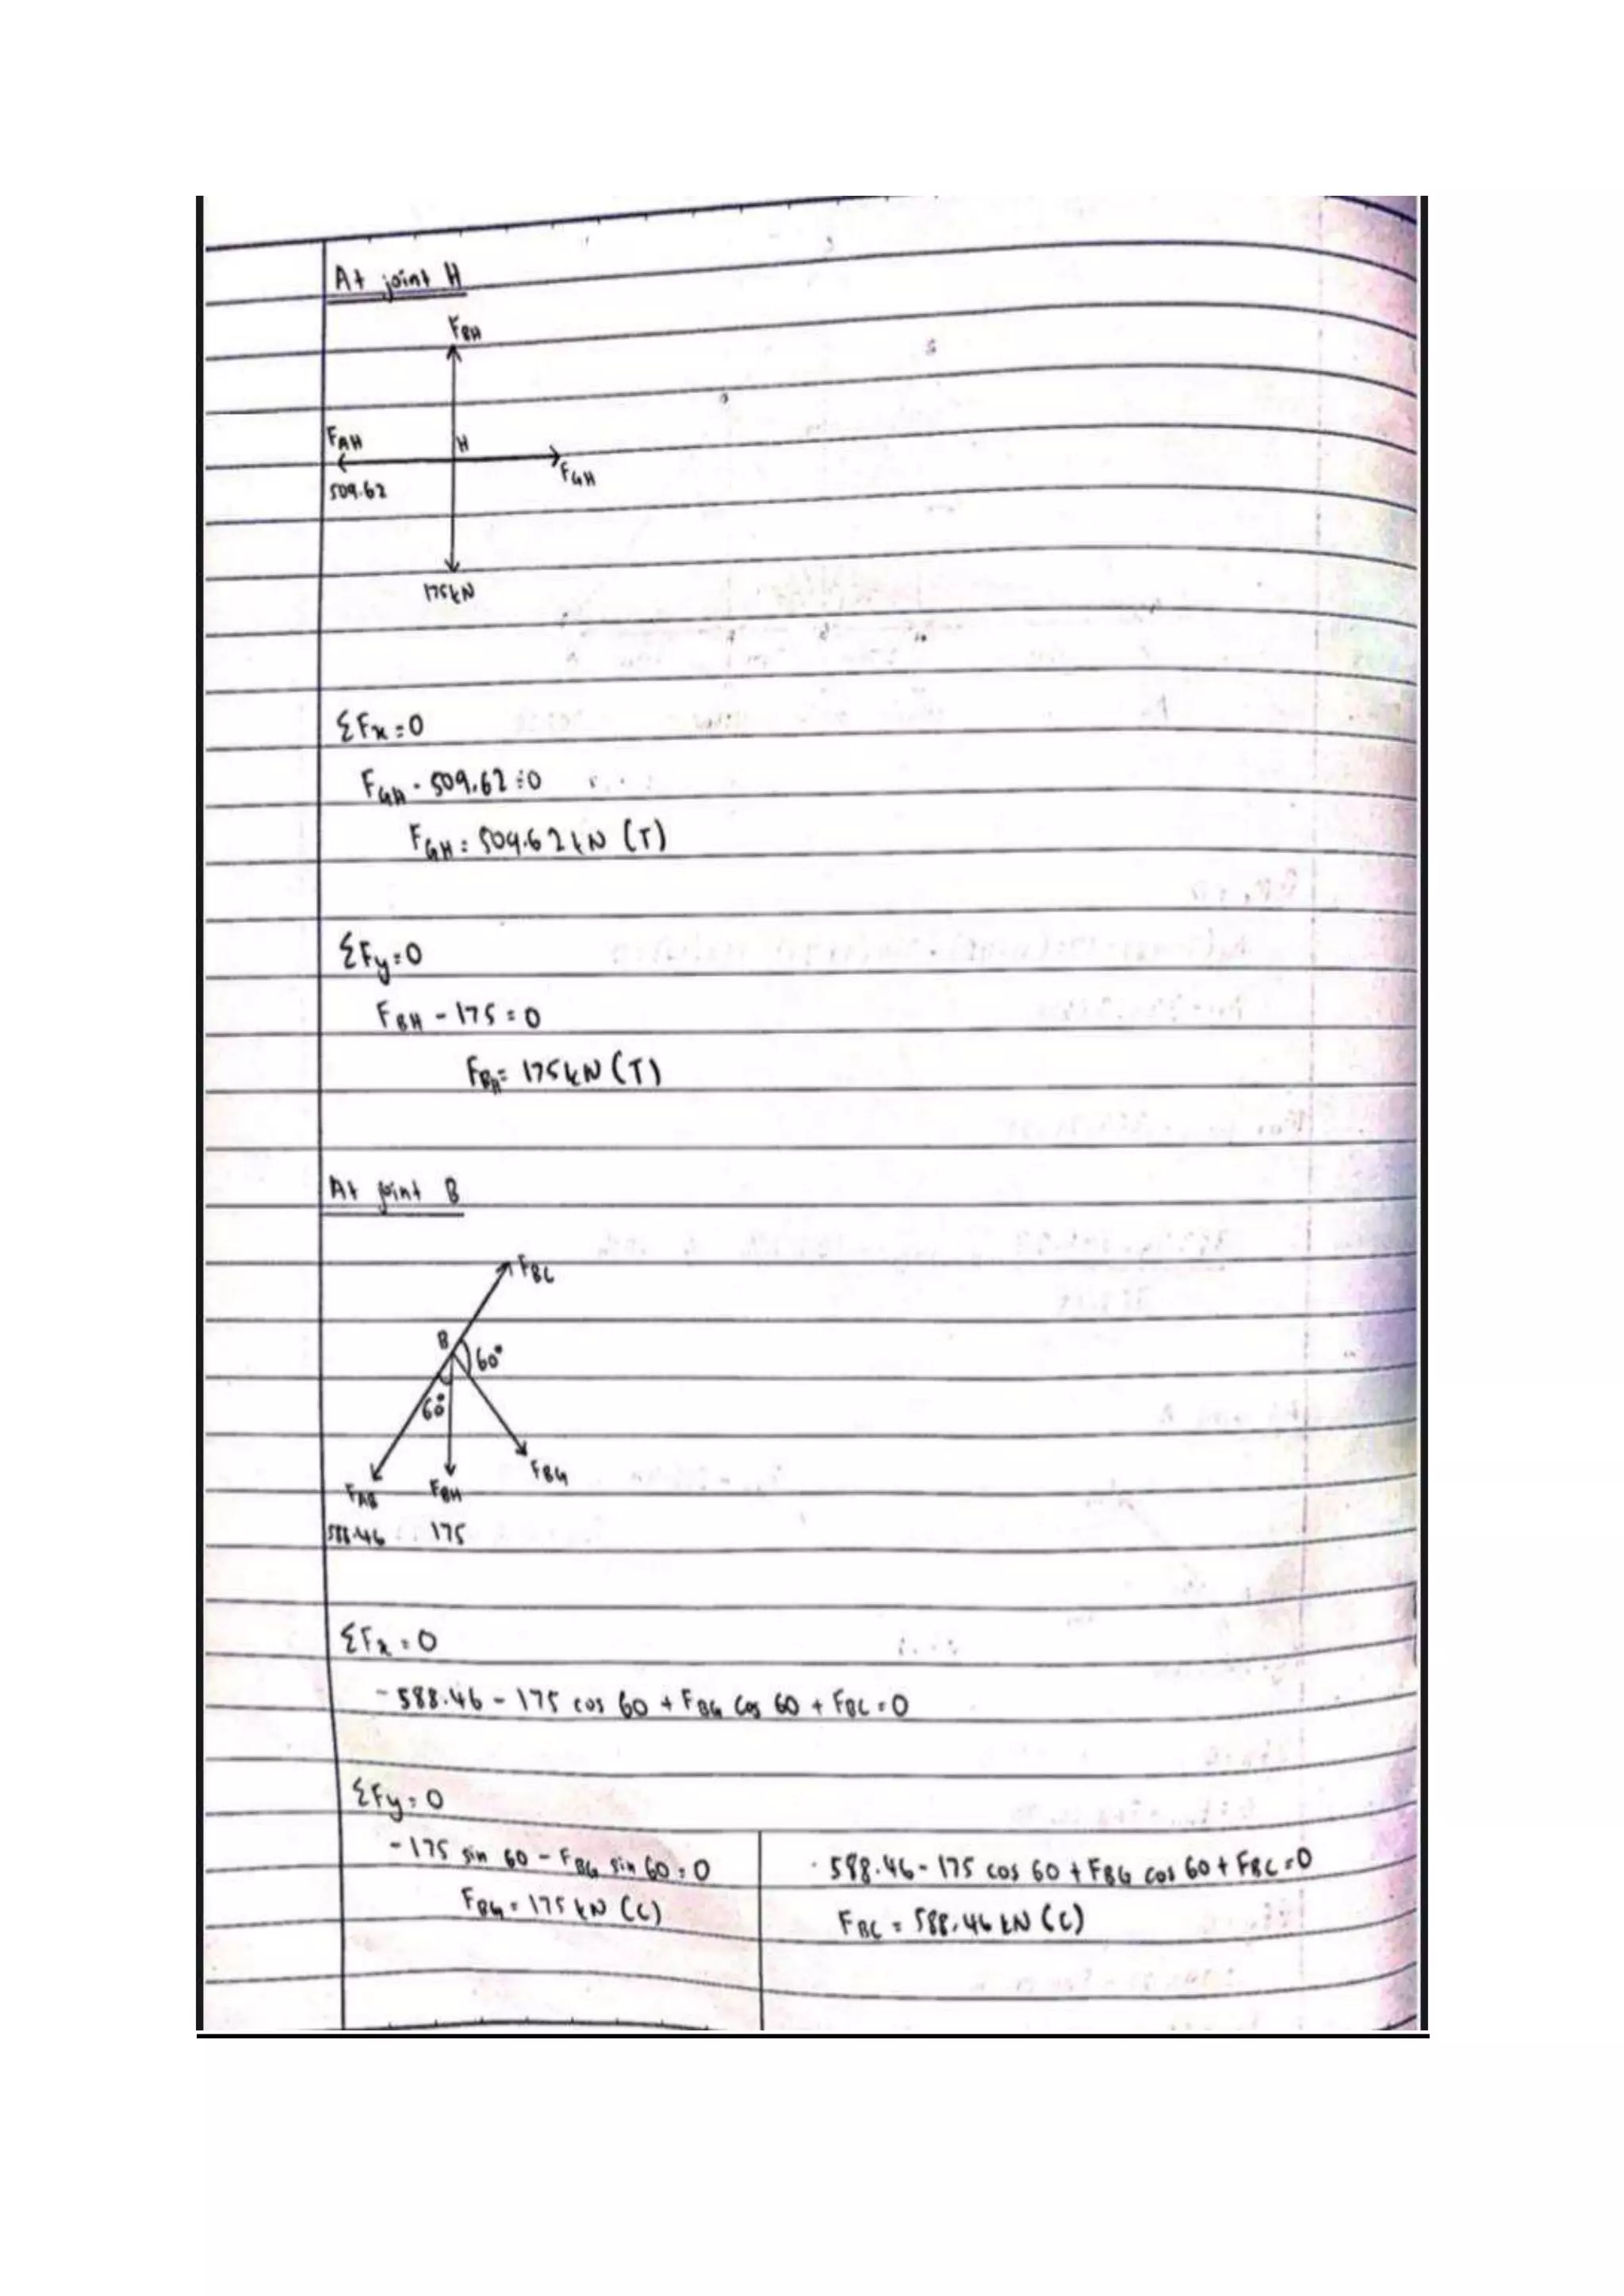 At joint H
FBH
FAH
H
FGH
509.62
175kN
ΣFx=0
FGH - 509.62=0
FGH = 509.62kN (T)
ΣFy=0
FBH - 175 = 0
FBH= 175kN (T)
At joint B
FBC
B
60°
60°
FBG
FAB
FBH
588.46
175
ΣFx = 0
-588.46 - 175 cos 60 + FBG cos 60 + FBC = 0
ΣFy = 0
-175 sin 60 - FBG sin 60 = 0
FBG = 175 kN (C)
-588.46 - 175 cos 60 + FBG cos 60 + FBC = 0
FBC = 588.46 kN (C)